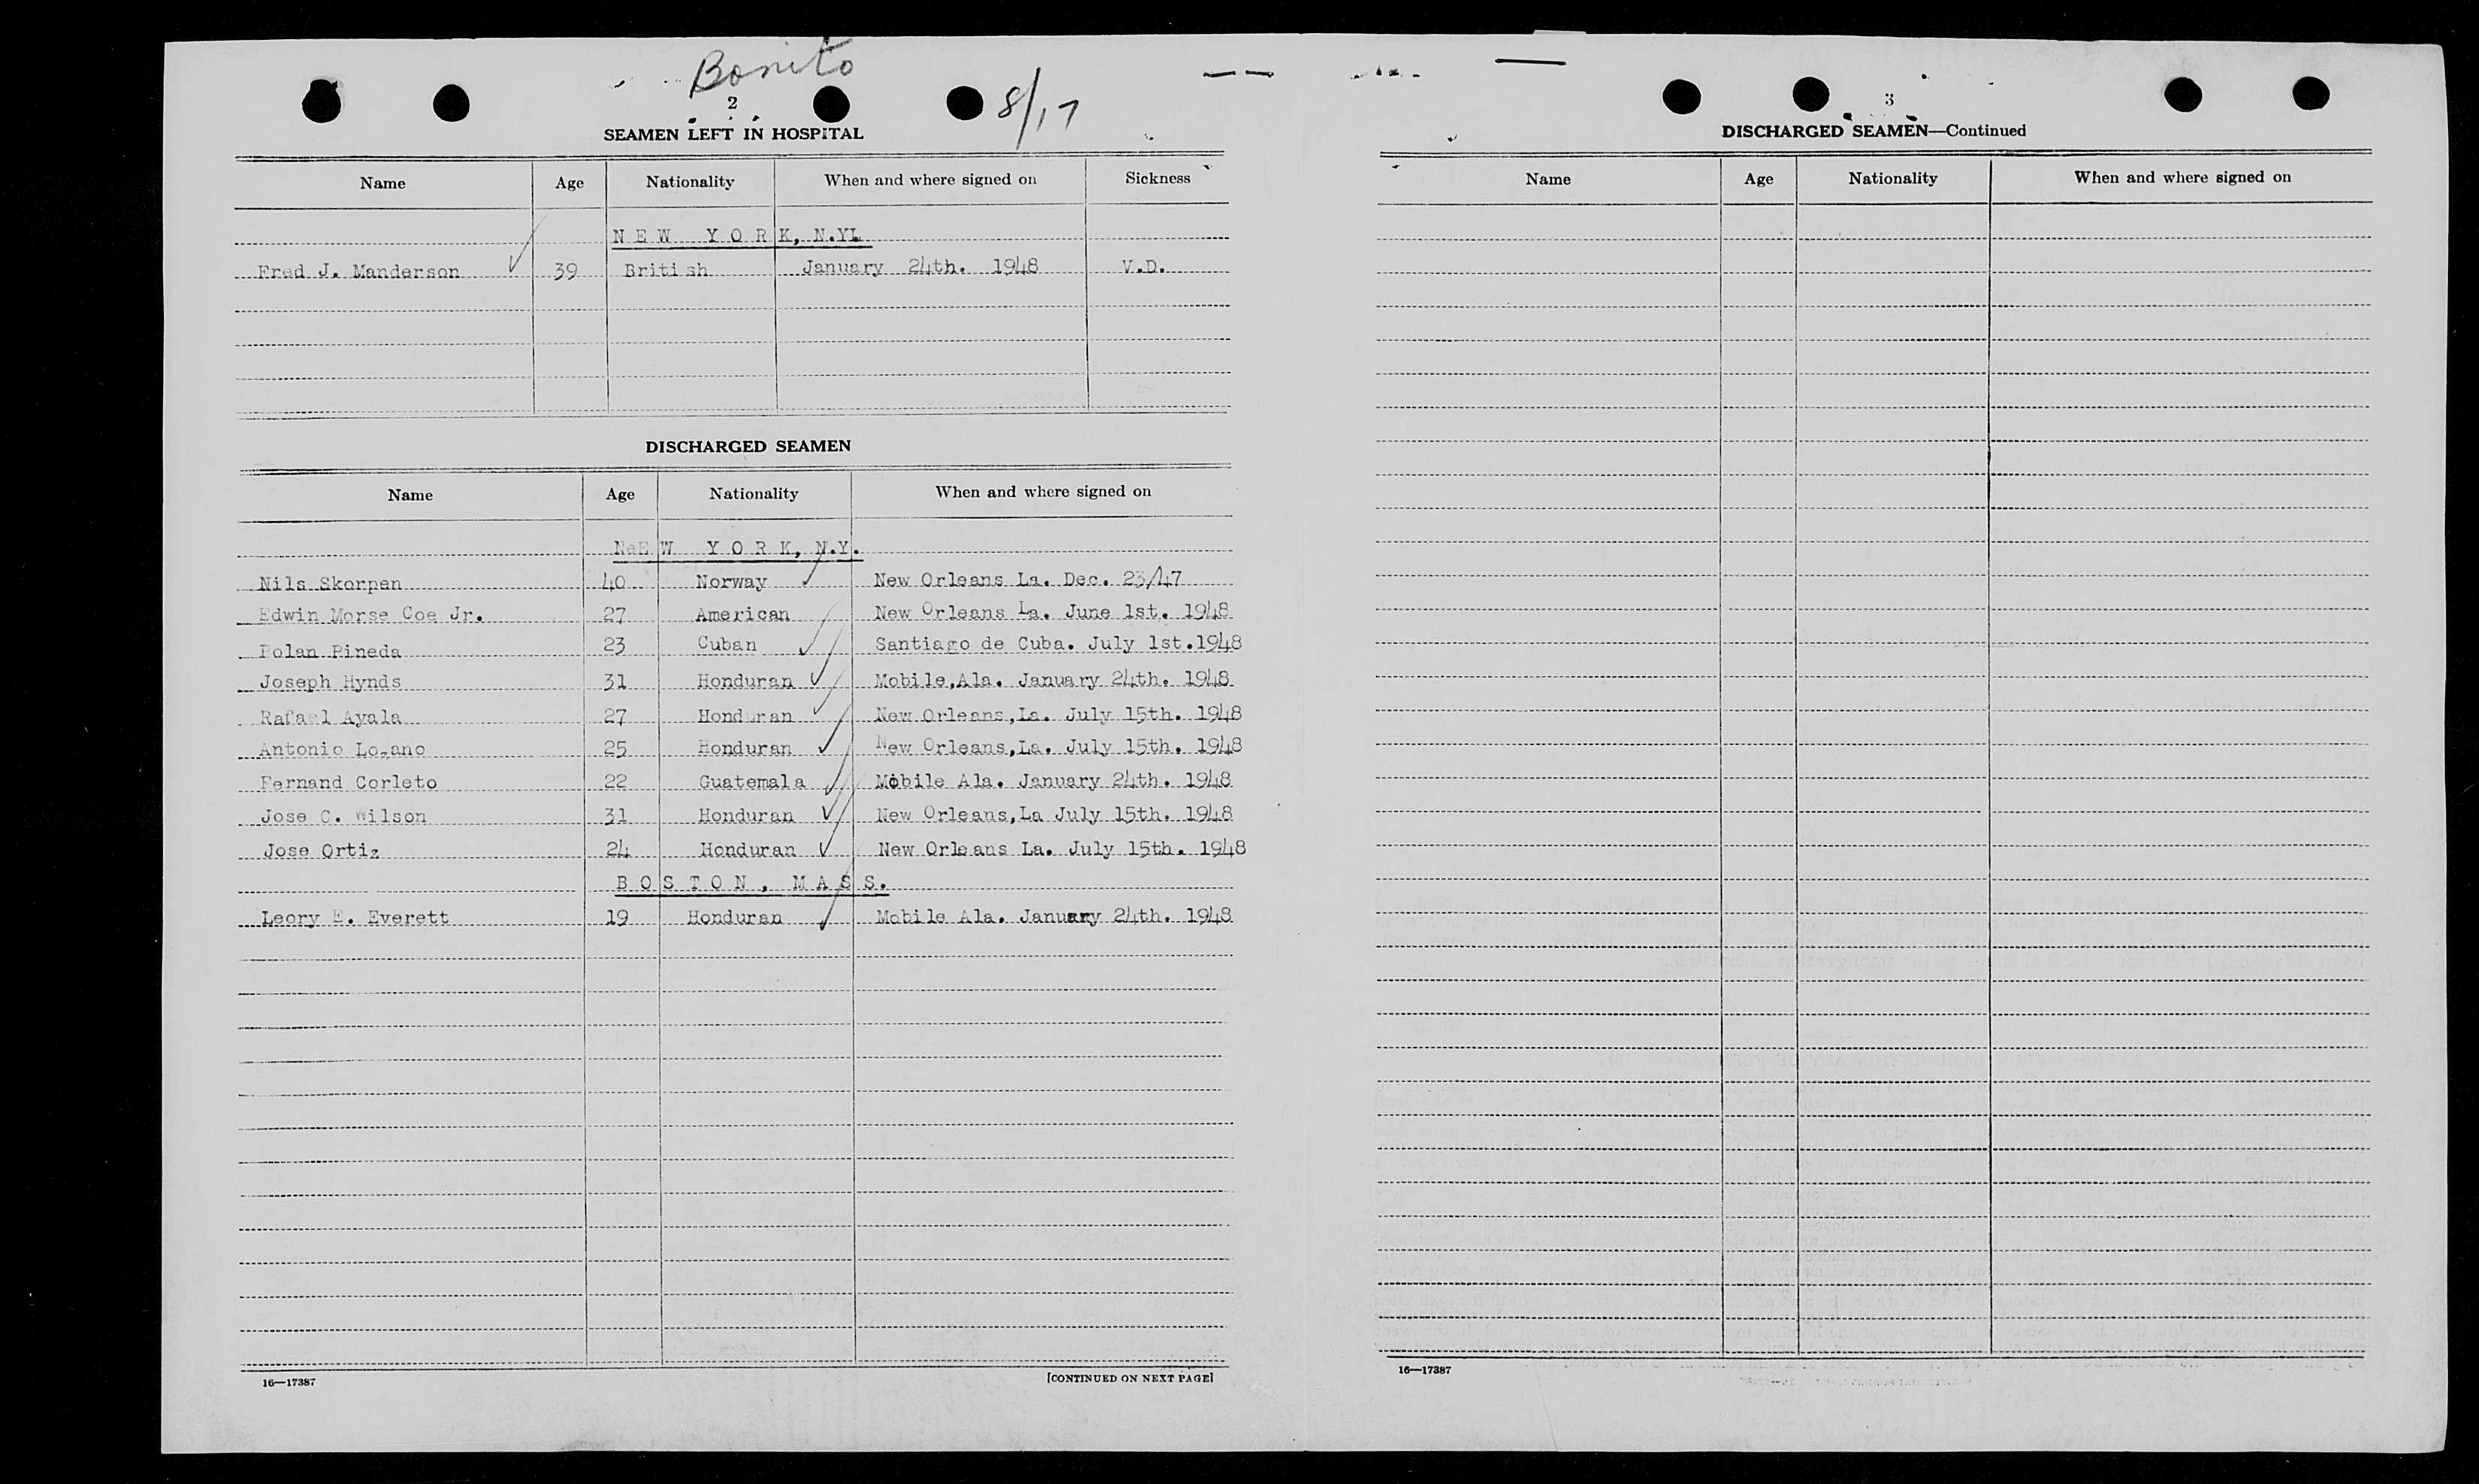 Bonito
2
8/17
SEAMEN LEFT IN HOSPITAL
Name Age Nationality When and where signed on Sickness
NEW YORK, N.Y.
Fred J. Manderson 39 British January 24th. 1948 V.D.
DISCHARGED SEAMEN
Name Age Nationality When and where signed on
NEW YORK, N.Y.
Nils Skorpen 40 Norway New Orleans La. Dec. 23/47
Edwin Morse Coe Jr. 27 American New Orleans La. June 1st. 1948
Polan Pineda 23 Cuban Santiago de Cuba. July 1st.1948
Joseph Hynds 31 Honduran Mobile,Ala. January 24th. 1948
Rafael Ayala 27 Honduran New Orleans,La. July 15th. 1948
Antonio Lozano 25 Honduran New Orleans,La. July 15th. 1948
Fernand Corleto 22 Guatemala Mobile Ala. January 24th. 1948
Jose C. Wilson 31 Honduran New Orleans,La July 15th. 1948
Jose Ortiz 24 Honduran New Orleans La. July 15th. 1948
BOSTON, MASS.
Leory E. Everett 19 Honduran Mobile Ala. January 24th. 1948
16—17387
[CONTINUED ON NEXT PAGE]
3
DISCHARGED SEAMEN—Continued
Name Age Nationality When and where signed on
16—17387